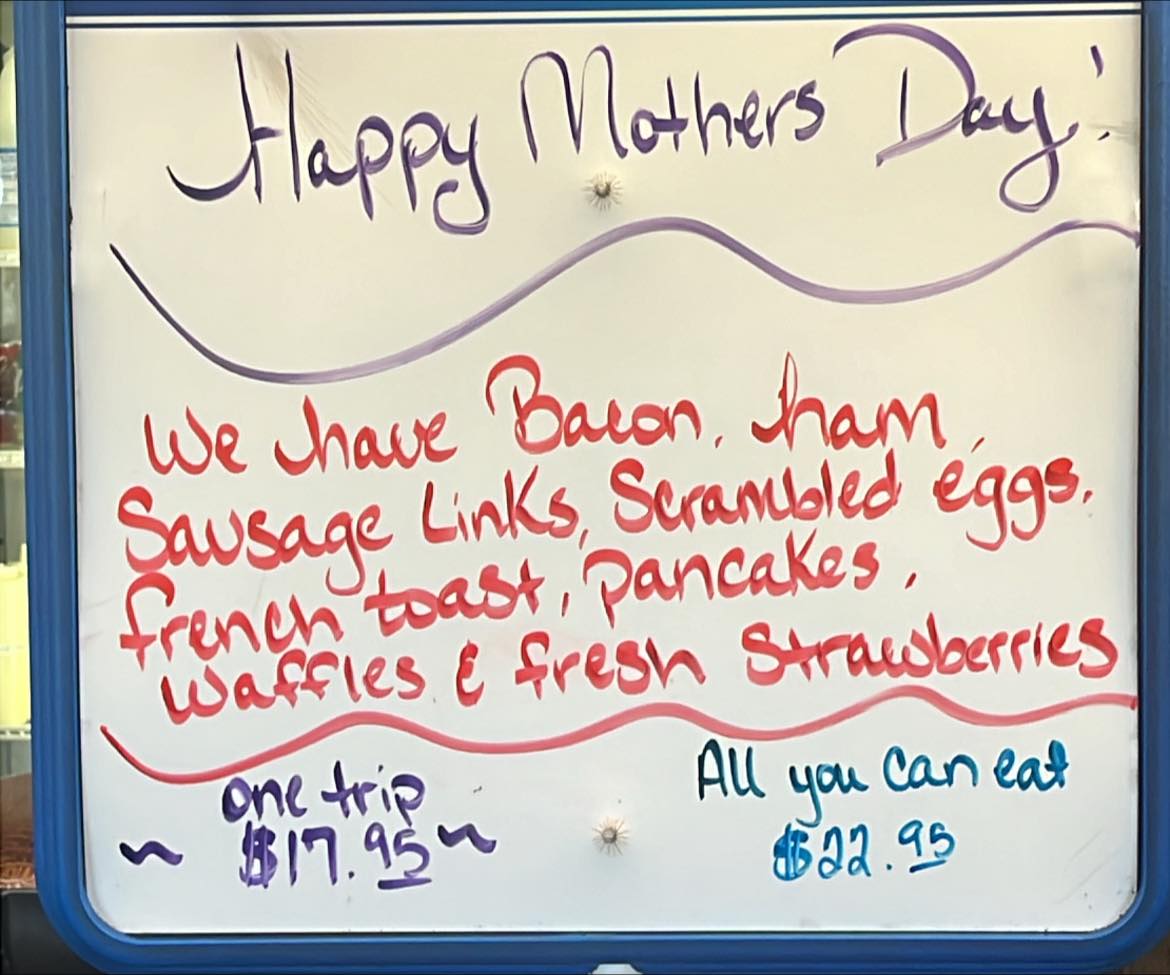 Happy Mothers Day!
We have Bacon, ham,
Sausage Links, Scrambled eggs,
french toast, pancakes,
waffles & fresh Strawberries
one trip
~ $17.95 ~
All you can eat
$22.95